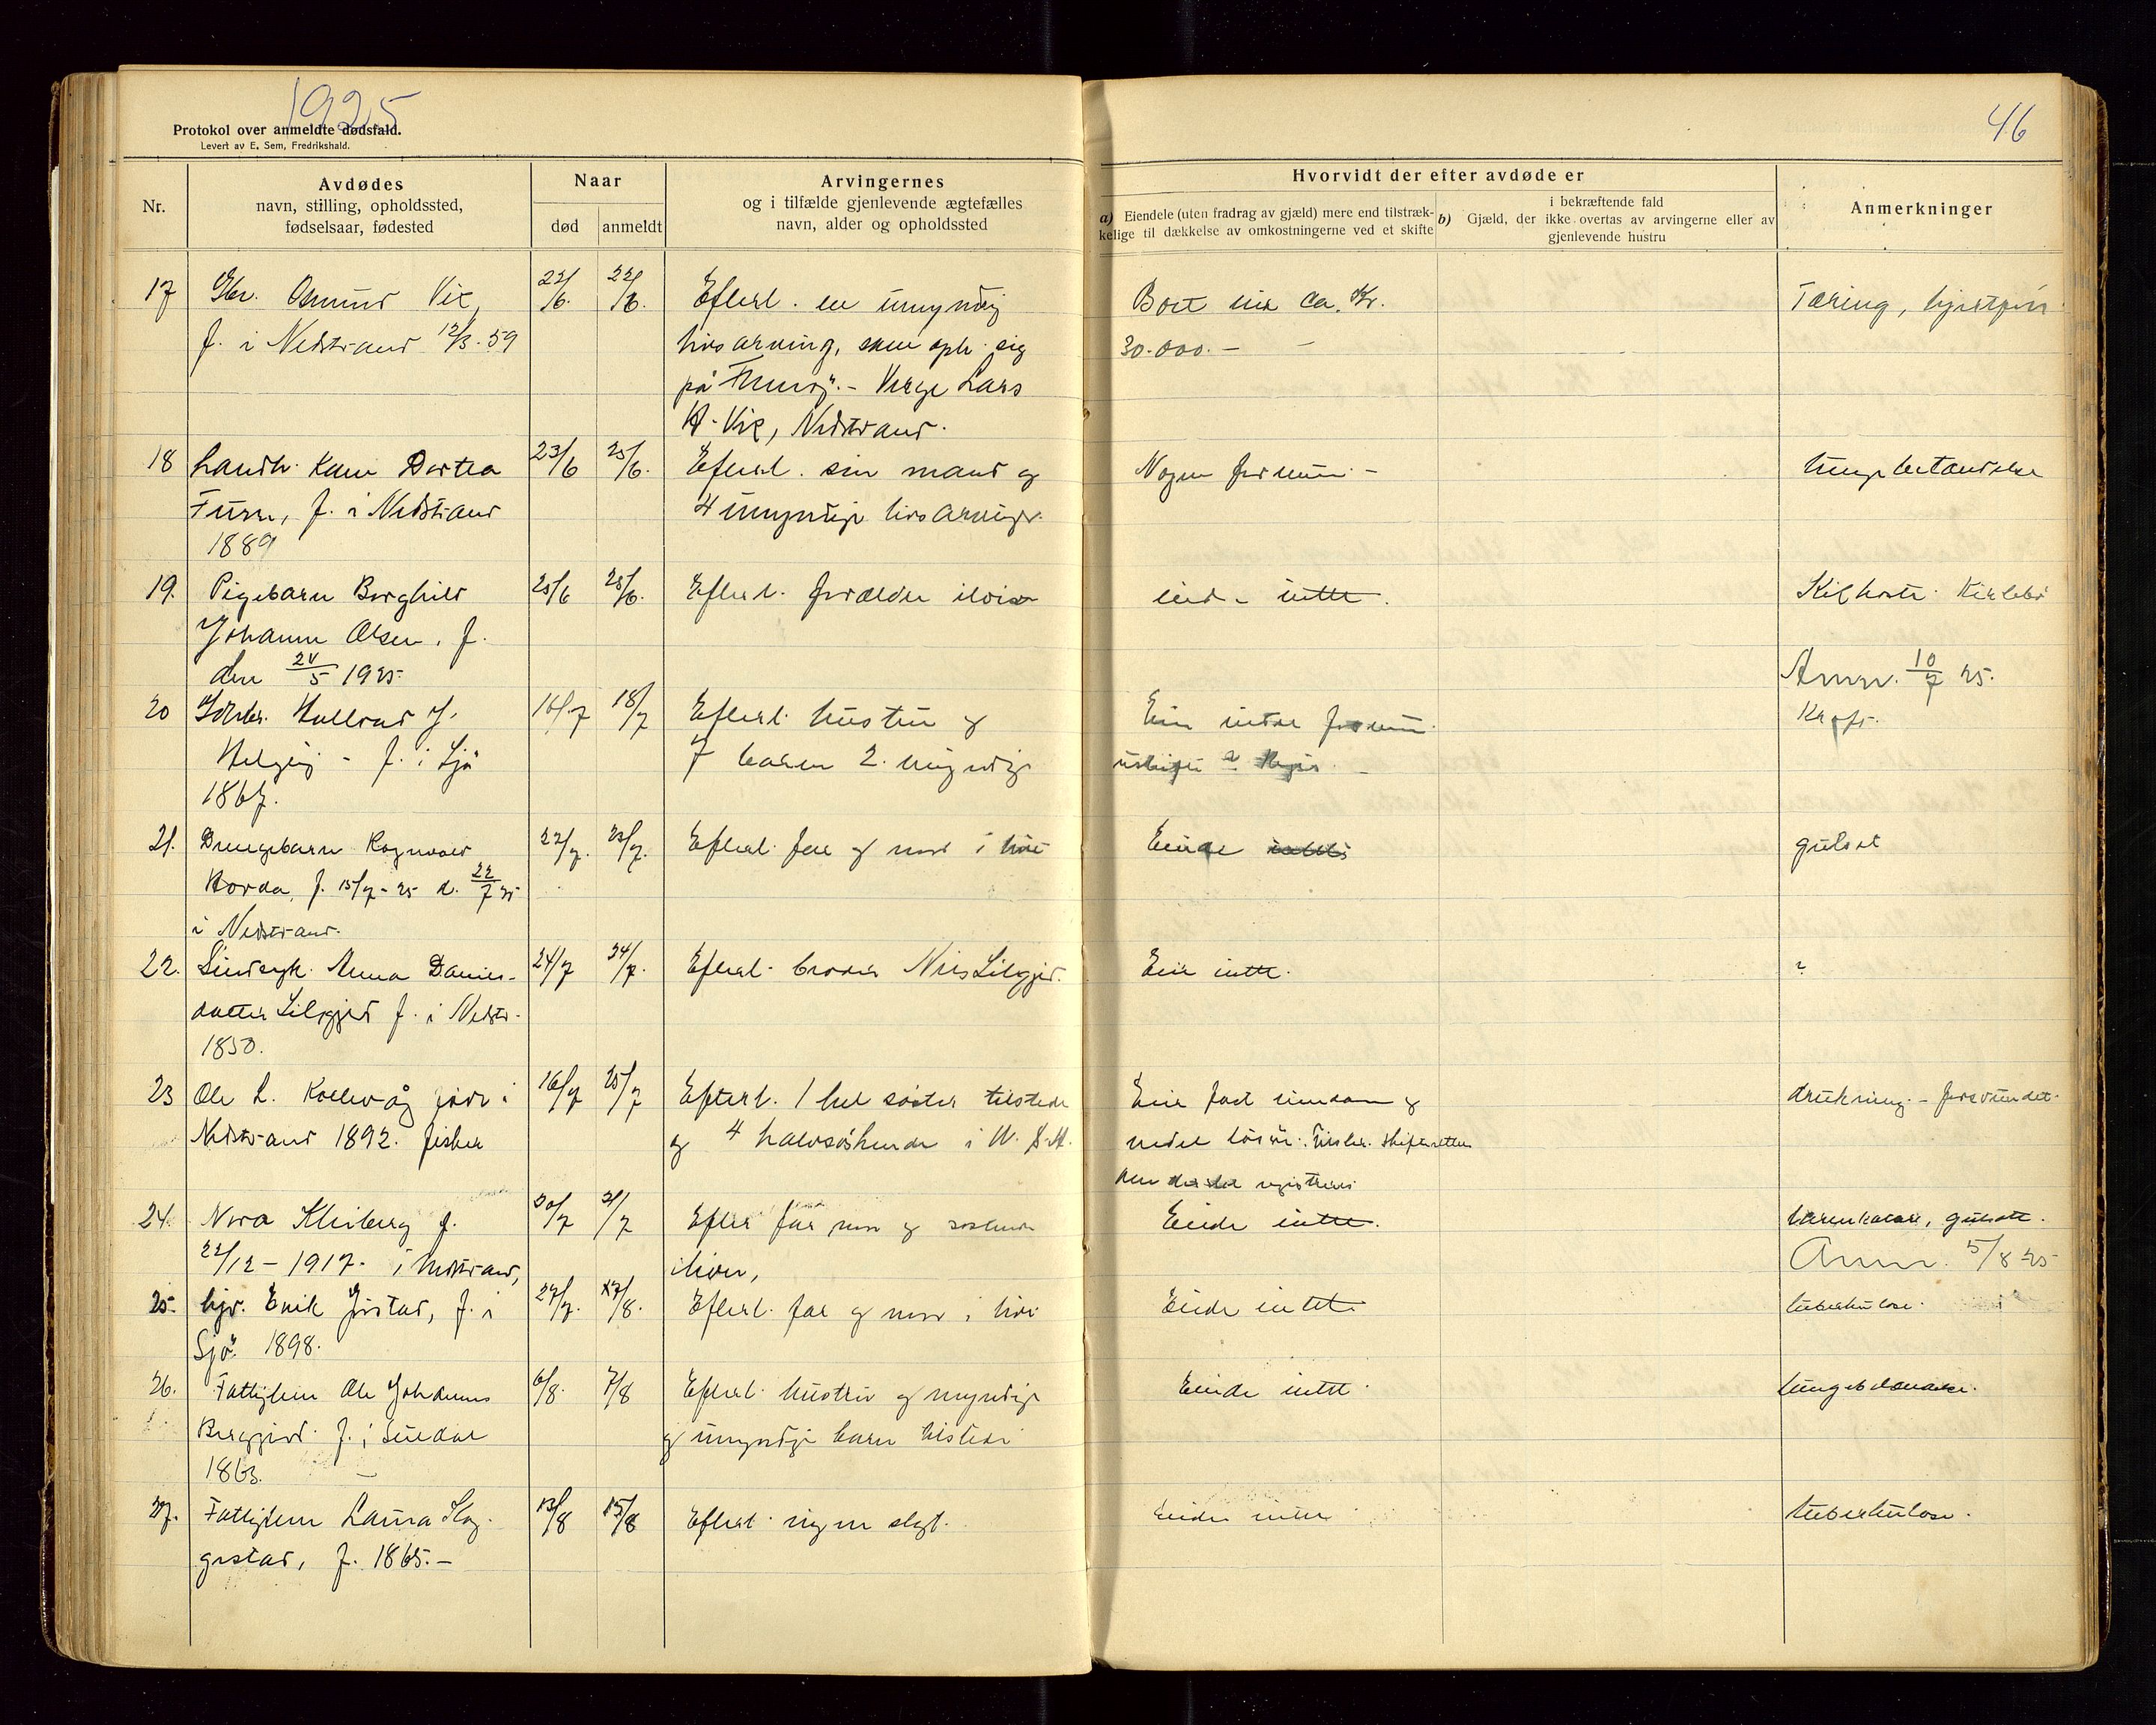 1925
46
Protokol over anmeldte dødsfald.
Levert av E. Sem, Fredrikshald.
Nr.
Avdødes
navn, stilling, opholdssted,
fødselsaar, fødested
Naar
død
anmeldt
Arvingernes
og i tilfælde gjenlevende ægtefælles
navn, alder og opholdssted
Hvorvidt der efter avdøde er
a) Eiendele (uten fradrag av gjæld) mere end tilstræk-
kelige til dækkelse av omkostningerne ved et skifte
i bekræftende fald
b) Gjæld, der ikke overtas av arvingerne eller av
gjenlevende hustru
Anmerkninger
17 Gbr. Osmund Vik, 22/6. 22/6. Efterl. en umyndig Boet eier ca. Kr. Tæring,
f. i Nedstrand 12/3.59 livsarving, som oph. sig 30.000.-
på - Verge Lars
H. Vik, Nedstrand.
18 Landh. Kone Dortea 23/6 25/6. Efterl. sin mand og Nogen formue.- lungebetændelse
f. i Nedstrand 4 umyndige livsarvinger.
1889
19. Pigebarn Borghild 25/6 28/6. Efterl. forældre ilive eiede intet. Kikhoste.
Johanne Olsen, f.
den 24/5 1925. Anm. 10/7 25.
20 Hallvard J. 16/7 18/7 Efterl. hustru og Kræft.
Helgøy - f. i Sjø 7 barn 2 umyndige
1867.
21. Drengebarn Ragnvald 22/7. 23/7. Efterl. far og mor i live Eiede intet gulsot
Horda, f. 15/7-25 d. 22/7 25
i Nedstrand.
22. Anna Daniels- 24/7 24/7. Efterl. broder Nils Lilgjerd. Eier intet. ?
datter Lilgjerd f. i Nedstr.
1850.
23 Ole L. Kollevåg født i 16/7 25/7 Efterl. 1 hel søster tilstede Eier fast eiendom og drukning - forsvundet.
Nedstrand 1892. fisker og 4 halvsøskende i U.S.A. skifteretten
registreres
24. Nora Kleiberg f. 30/7 31/7 Efterl far mor og søskende Eiede intet. gulsot.
22/12-1917. i Nedstrand, ilive, Anm. 5/8 25
25. Enik f. i 27/7. Efterl. far og mor i live Eiede intet. tuberkulose.
Sjø 1898.
26. Fattiglem Ole Johannes 6/8. 7/8 Efterl. hustru og myndige Eiede intet. lungebetændelse.
Berggjerd f. i Suldal og umyndige barn tilstede
1863.
27. Fattiglem Laura Skog- 13/8 15/8 Efterl. ingen slegt. Eiede intet tuberkulose.
gestad, f. 1865.-